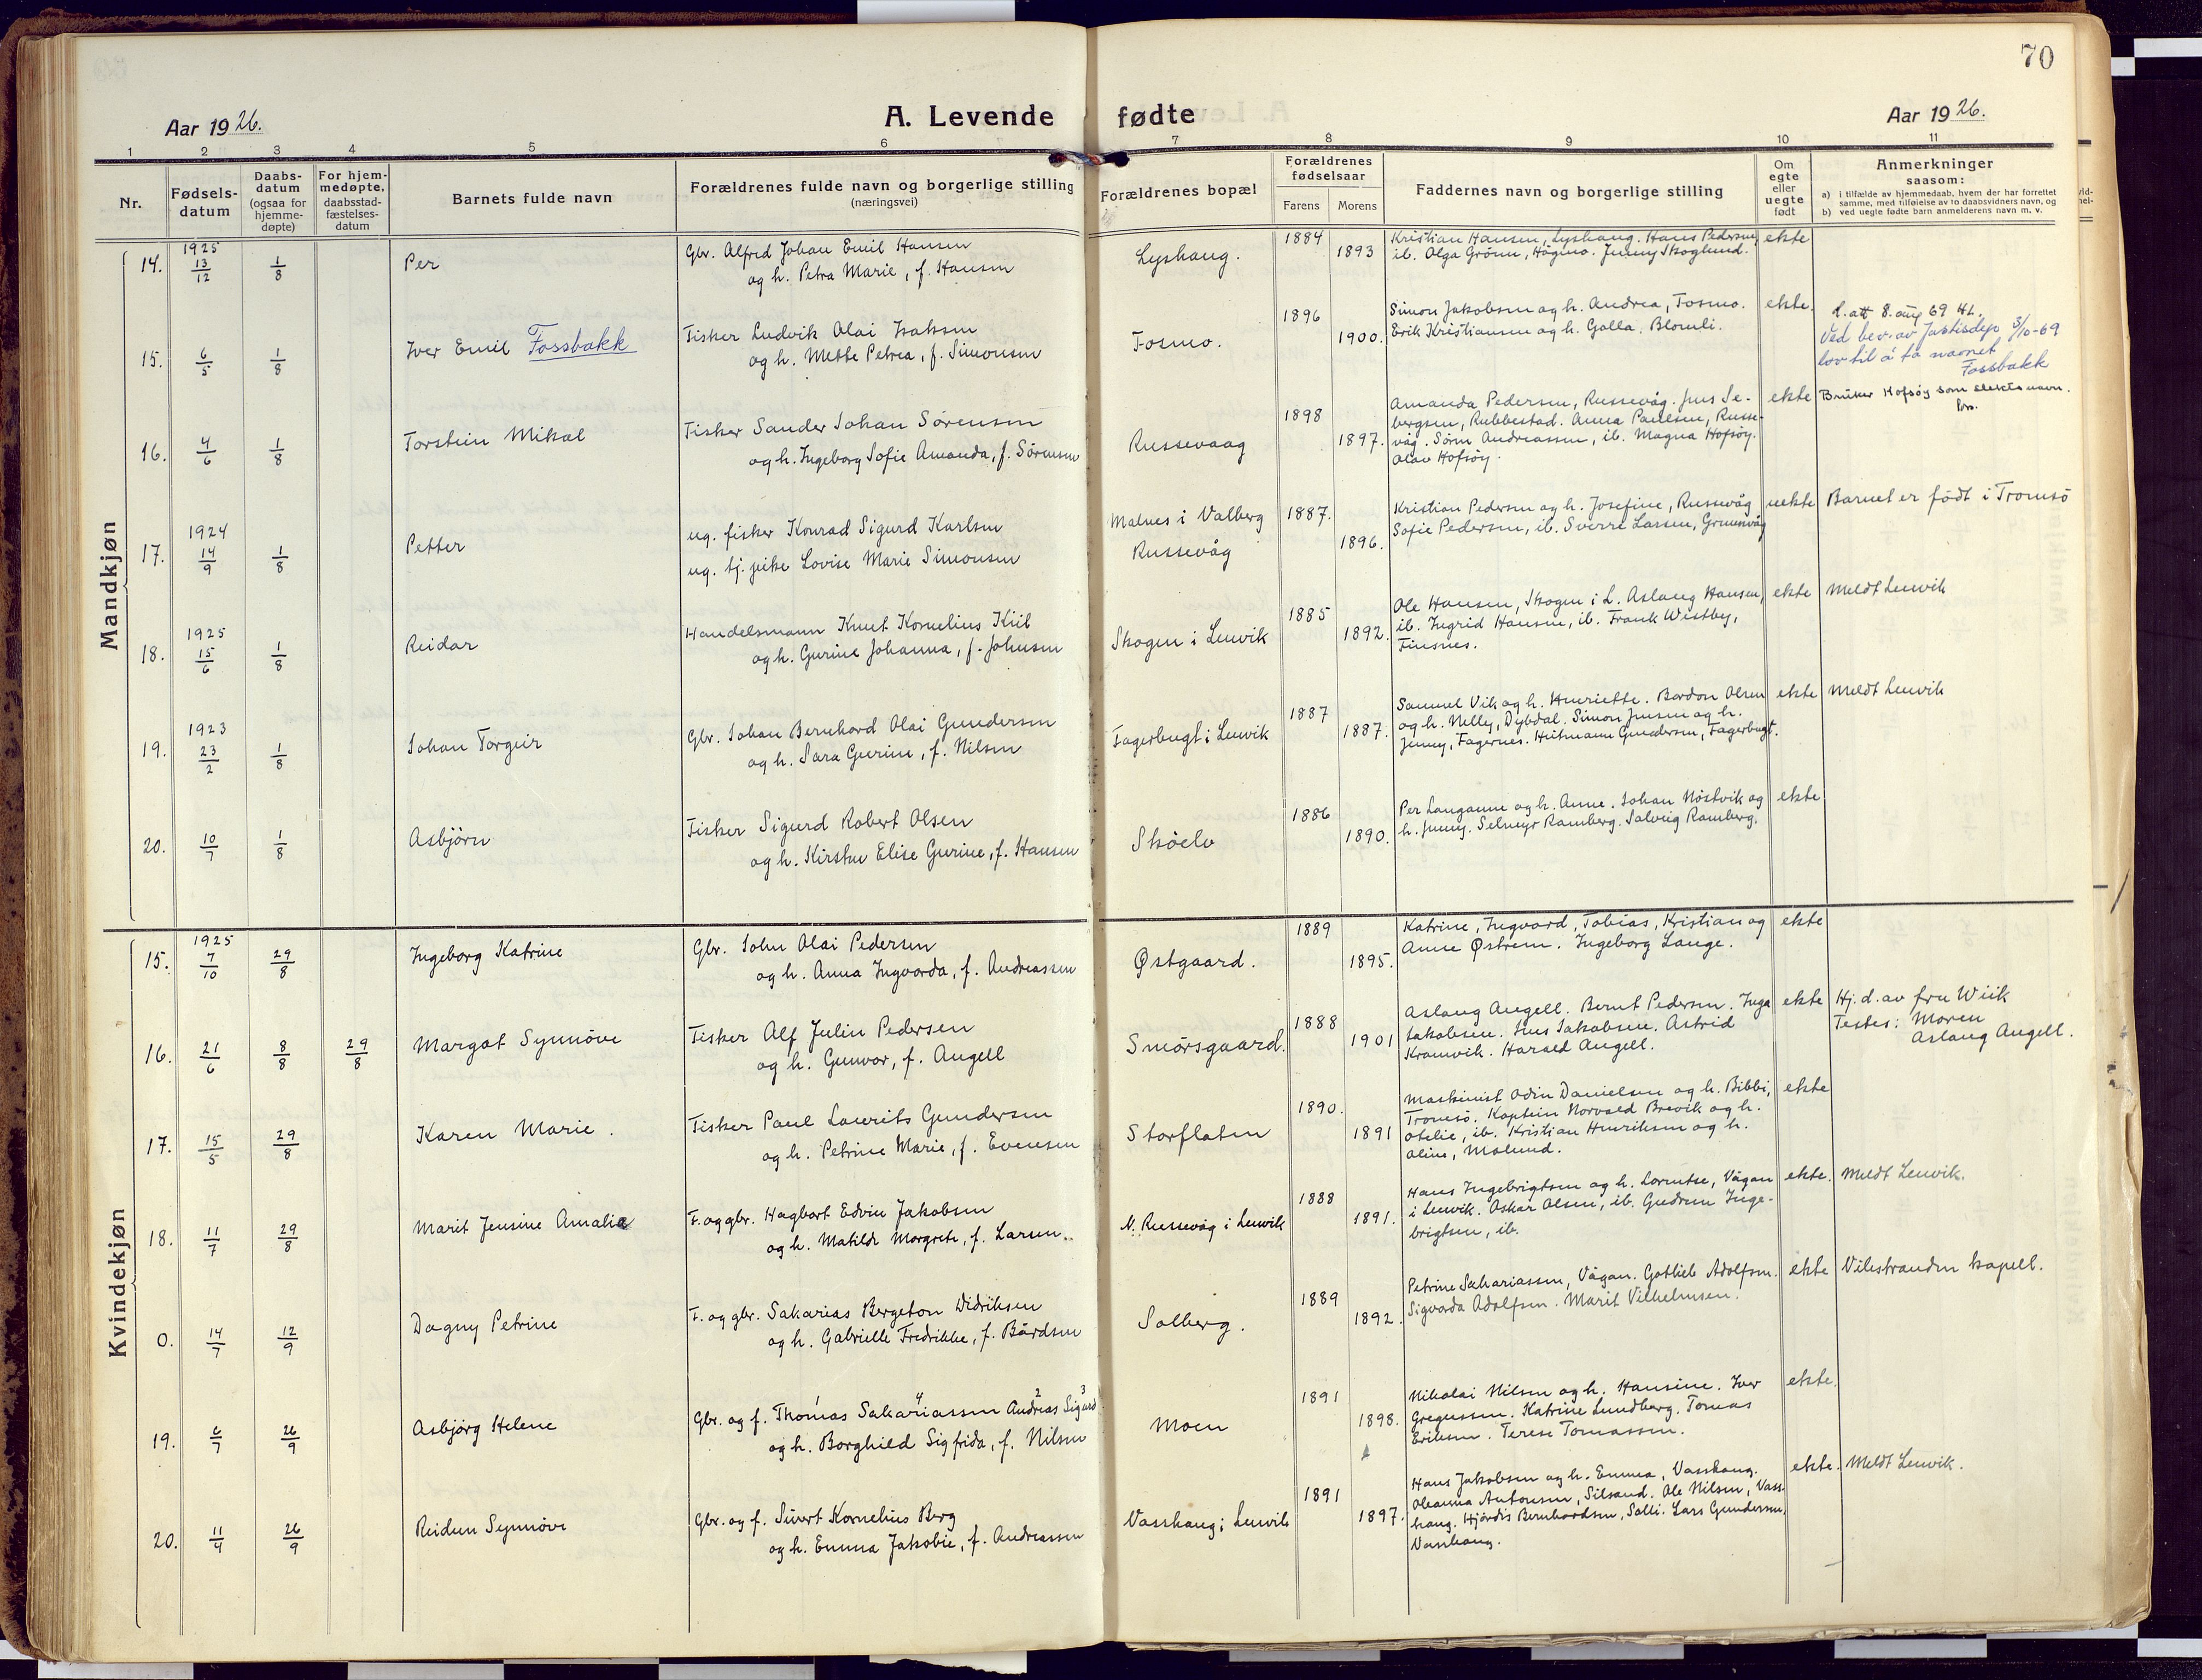 70
Aar 1926.
A. Levende fødte
Aar 1926.
1 2 3 4 5 6 7 8 9 10 11
Nr.
Fødsels-
datum
Daabs-
datum
(ogsaa for
hjemme-
døpte)
For hjem-
medøpte,
daabsstad-
fæstelses-
datum
Barnets fulde navn
Forældrenes fulde navn og borgerlige stilling
(næringsvei)
Forældrenes bopæl
Forældrenes
fødselsaar
Farens Morens
Faddernes navn og borgerlige stilling
Om
egte
eller
uegte
født
Anmerkninger
saasom:
a) i tilfælde av hjemmedaab, hvem der har forrettet
samme, med tilføielse av to daabsvidners navn, og
b) ved uegte fødte barn anmelderens navn m. v.
Mandkjøn
14. 1925 13/12 1/8 Per
Gbr. Alfred Johan Emil Hansen
og h. Petra Marie, f. Hansen
Lyshaug. 1884 1893
Kristian Hansen, Lyshaug. Hans Pedersen,
ib. Olga Grönn, Högmo. Jenny Skoglund.
ekte
15. 6/5 1/8 Iver Emil Fossbakk
Fisker Ludvik Olai Isaksen
og h. Mette Petrea, f. Simonsen
Fosmo. 1896 1900.
Simon Jakobsen og h. Andrea, Fosmo.
Erik Kristiansen og h. Golla, Blomli.
ekte.
l. att 8. aug 69
Ved bev. av Justisdep 3/10-69
lov til å ta navnet
Fossbakk
16. 4/6 1/8 Torstein Mikal
Fisker Sander Johan Sörensen
og h. Ingeborg Sofie Amanda, f. Sörensen
Russevaag 1898 1897.
Amanda Pedersen, Russevåg. Jens Se-
bergsen, Rubbestad. Anna Paulsen, Russe-
våg. Sören Andreassen, ib. Magna Hofsöy.
Olav Hofsöy.
ekte
Bruker Hofsöy som slektsnavn.
17. 1924 14/9 1/8 Petter
ug. fisker Konrad Sigurd Karlsen
ug. tj. pike Lovise Marie Simonsen
Malnes i Valberg
Russevåg
1887. 1896.
Kristian Pedersen og h. Josefine, Russevåg
Sofie Pedersen, ib. Sverre Larsen, Grunnvåg
uekte
Barnet er födt i Tromsö
18. 1925 15/6 1/8 Reidar
Handelsmann Knut Kornelius Kiil
og h. Gurine Johanna, f. Johnsen
Skogen i Lenvik 1885 1892.
Ole Hansen, Skogen i L. Aslaug Hansen,
ib. Ingrid Hansen, ib. Frank Westby,
Finsnes.
ekte
Meldt Lenvik
19. 1923 23/2 1/8 Johan Torgeir
Gbr. Johan Bernhard Olai Gundersen
og h. Sara Gurine, f. Nilsen
Fagerbugt i Lenvik 1887 1887.
Samuel Vik og h. Henriette. Bardon Olsen
og h. Nelly, Dybdal. Simon Jensen og h.
Jenny, Fagernes. Hartmann Gundersen, Fagerbugt.
ekte
Meldt Lenvik
20. 10/7 1/8 Asbjörn
Fisker Sigurd Robert Olsen
og h. Kirsten Elise Gurine, f. Hansen
Sköelv 1886 1890.
Per Langamne og h. Anne. Johan Nöstvik og
h. Jenny. Selmeyr Ramberg. Solveig Ramberg.
ekte
Kvindekjøn
15. 1925 7/10 29/8 Ingeborg Katrine
Gbr. John Olai Pedersen
og h. Anna Ingvarda, f. Andreassen
Østgaard. 1889 1895.
Katrine, Ingvard, Tobias, Kristian og
Anne Østrem. Ingeborg Lange.
ekte
16. 21/6 8/8 29/8 Margot Synnöve
Fisker Alf Julin Pedersen
og h. Gunvor, f. Angell
Smörsgaard. 1888 1901
Aslaug Angell. Bernt Pedersen. Inga
Jakobsen. Jens Jakobsen. Astrid
Kramvik. Harald Angell.
ekte
Hj. d. av fru Wiik
Testes: Moren
Aslaug Angell.
17. 15/5 29/8 Karen Marie.
Fisker Paul Laurits Gundersen
og h. Petrine Marie, f. Evensen
Storflaten 1890. 1891
Maskinist Odin Danielsen og h. Bibbi,
Tromsö. Kaptein Norvald Brevik og h.
Otelie, ib. Kristian Henriksen og h.
Aline, Moland.
ekte
18. 11/7 29/8 Marit Jensine Amalie
F. og gbr. Hagbart Edvin Jakobsen
og h. Matilde Margrete, f. Larsen.
N. Russevåg i Lenvik 1888 1891.
Hans Ingebrigtsen og h. Lorentse, Vågan
i Lenvik. Oskar Olsen, ib. Gudrun Inge-
brigtsen, ib.
ekte.
Meldt Lenvik.
0. 14/7 12/9 Dagny Petrine
F. og gbr. Sakarias Bergeton Didriksen
og h. Gabrielle Fredrikke, f. Bårdsen
Solberg. 1889 1892.
Petrine Sakariassen, Vågan. Gotlieb Adolfsen.
Sigvarda Adolfsen. Marit Vilhelmsen.
ekte
Vikstranden kapell.
19. 6/7 26/9 Asbjörg Helene
Gbr. og f. Thomas Sakariassen Andreas Sigurd
1 4 2 3
og h. Borghild Sigfrida, f. Nilsen
Moen 1891 1898.
Nikolai Nilsen og h. Hansine. Iver
Gregussen. Katrine Lundberg. Tomas
Eriksen. Terese Tomassen.
ekte.
20. 11/4 26/9 Reidun Synnöve
Gbr. og f. Sivert Kornelius Berg
og h. Emma Jakobie, f. Andreassen
Vasshaug i Lenvik 1891 1897.
Hans Jakobsen og h. Emma, Vasshaug.
Oleanna Antonsen, Silsand. Ole Nilsen, Vass-
haug. Hjördis Bernhardsen, Solli. Lars Gundersen,
Vasshaug.
ekte.
Meldt Lenvik.